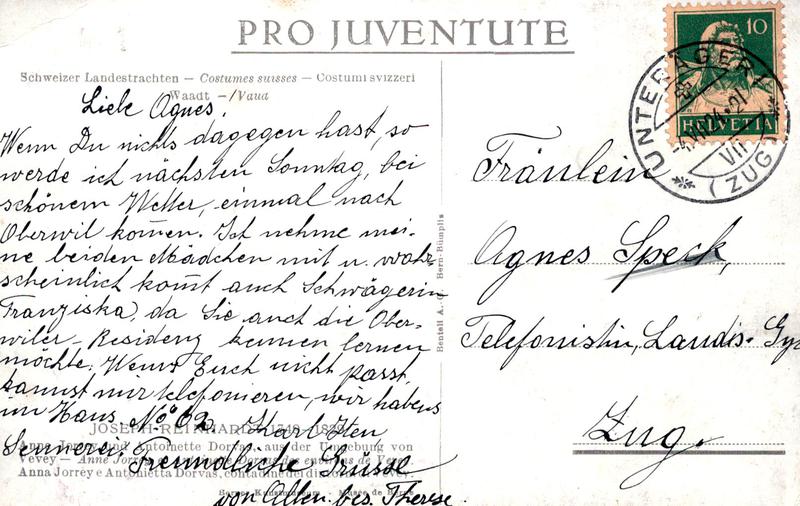 PRO JUVENTUTE
Schweizer Landestrachten — Costumes suisses — Costumi svizzeri
Waadt - /Vaud
Liebe Agnes!
Wenn Du nichts dagegen hast, so
werde ich nächsten Sonntag, bei
schönem Wetter, einmal nach
Oberwil kom̅en. Ich nehme mei-
ne beiden Mädchen mit u. wahr-
scheinlich kom̅t auch Schwägerin
Franziska, da Sie auch die Ober-
wiler-Residenz kennen lernen
möchte. Wenns Euch nicht passt,
kannst mir telefonieren, wir habens
im Haus No 62 Karl Iten
Sennerei.
Freundliche Grüsse
von Allen bes. Therese.
JOSEPH REINHARDT 1749-1829
Anne Jorrey und Antoinette Dorvas, aus der Umgebung von
Vevey — Anne Jorrey et Antoinette Dorvas des environs de Vevey
Anna Jorrey e Antonietta Dorvas, contadine dei dintorni di Vevey
Berner Kunstmuseum Musée de Berne
Benteli A. G. Bern-Bümpliz
10
HELVETIA
UNTERÄGERI
VII
(ZUG)
Fräulein
Agnes Speck,
Telefonistin, Landis-Gyr
Zug.